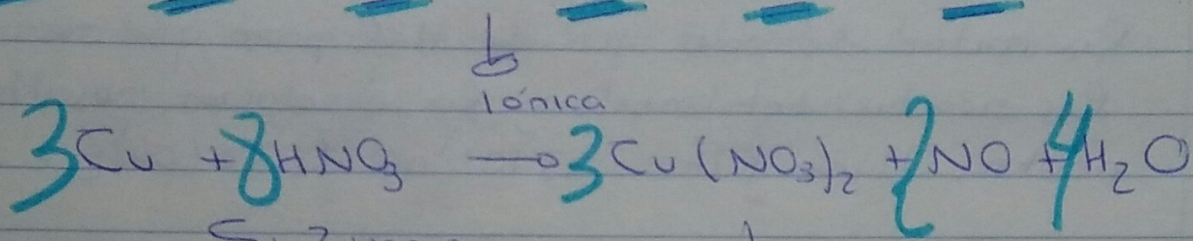 b
Iónica
3Cu + 8HNO₃ → 3Cu(NO₃)₂ + 2NO + 4H₂O